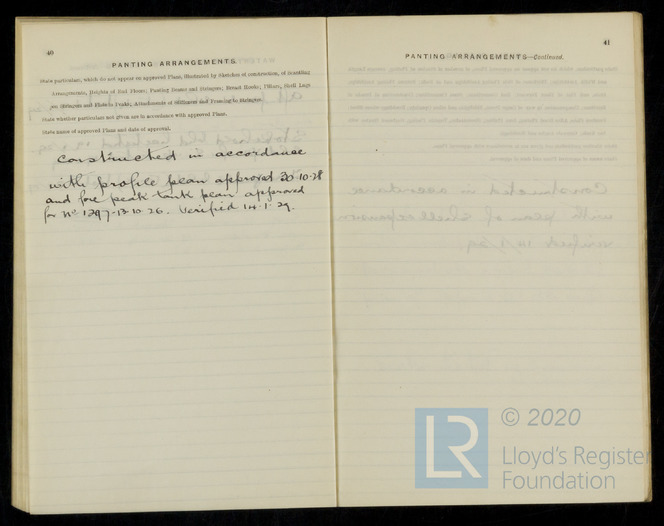 40
PANTING ARRANGEMENTS.
State particulars, which do not appear on approved Plans, illustrated by Sketches of construction, of Scantling
Arrangements, Heights of End Floors; Panting Beams and Stringers; Breast Hooks; Pillars, Shell Lugs
on Stringers and Flats in Peaks; Attachments of Stiffeners and Framing to Stringers.
State whether particulars not given are in accordance with approved Plans.
State name of approved Plans and date of approval.
Constructed in accordance
with profile plan approved 30·10·28
and fore peak tank plan approved
for No 1297·13·10·26. Verified 14·1·29.
41
PANTING ARRANGEMENTS—Continued.
LR
© 2020
Lloyd's Register
Foundation